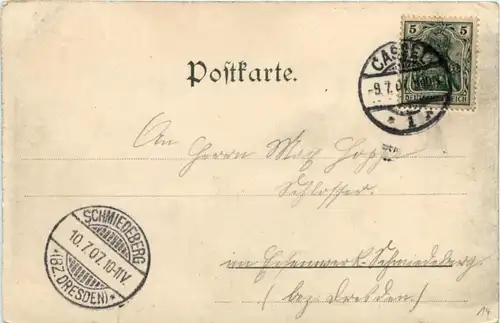 Postkarte.
5 5
DEUTSCHES REICH
CASSEL
-9.7.07.
* 1
An Herrn Max Hoppe
Schlosser.
im Eisenwerk-Schmiedeberg
(bez. Dresden.)
SCHMIEDEBERG
10.7.07.10-11V.
*(BZ.DRESDEN)*
14